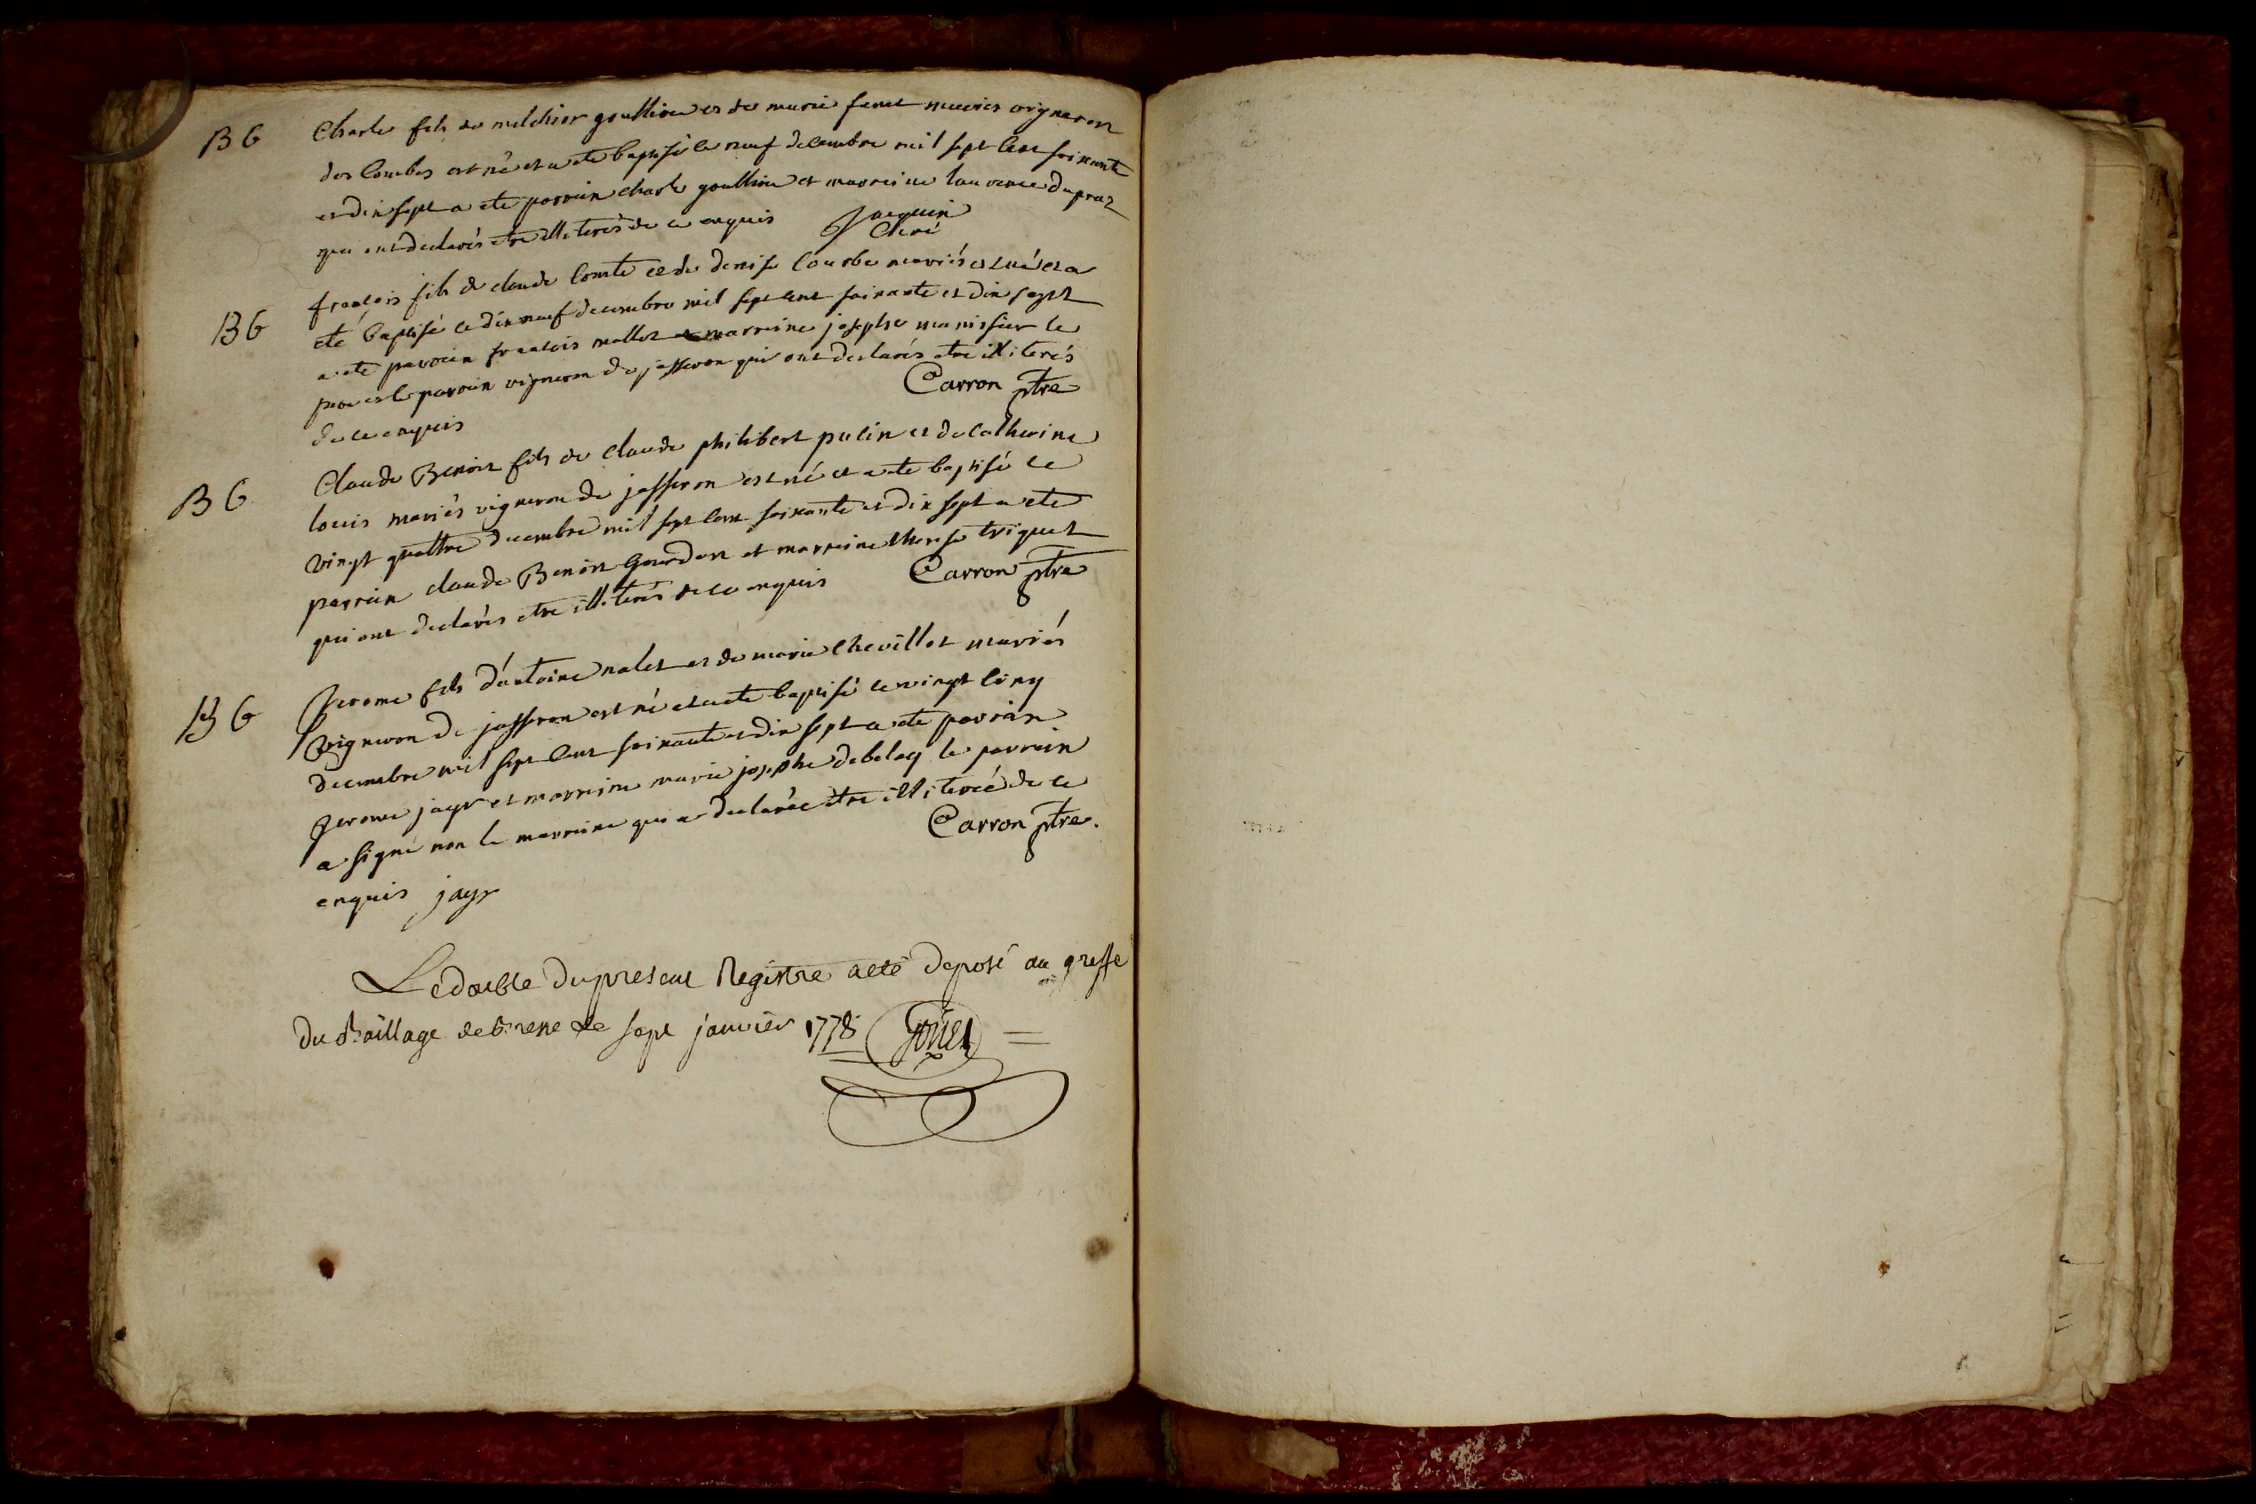 B G
Charle fils de melchior goullion et de marie feret mariés vigneron
des Combes est né et a ete baptisé le neuf decembre mil sept cent soixante
et dix sept a ete parrain charle goullion et marreine laurence dupraz
qui ont declarés etre illiterés de ce enquis Jacquin
Curé
B G
françois fils de claude Comte et de denise Courbe mariés est né et a
eté baptisé le dix neuf decembre mil sept cent soixante et dix sept
a ete parrain francois mallet et marreine josephe manissier le
pere et le parrain vigneron de jasseron qui ont declarés etre illiterés
de ce enquis Carron ptre
B G
Claude Benoit fils de claude philibert pulin et de Catherine
louis mariés vigneron de jasseron est né et a ete baptisé le
vingt quattre decembre mil sept cent soixante et dix sept a ete
parrain claude Benoit Gourdon et marreine therese triquet
qui ont declarés etre illiterés de ce enquis Carron ptre
B G
Jerome fils d'antoine nalet et de marie Chevillot mariés
vigneron de jasseron est né et a ete baptisé le vingt cinq
decembre mil sept cent soixante et dix sept a ete parrain
Jerome jayr et marreine marie josephe debeley le parrain
a signé non la marreine qui a declarée etre illiterée de ce
enquis jayr Carron ptre.
Le double du present Registre a eté deposé au greffe
du Bailliage de Bresse le sept janvier 1778